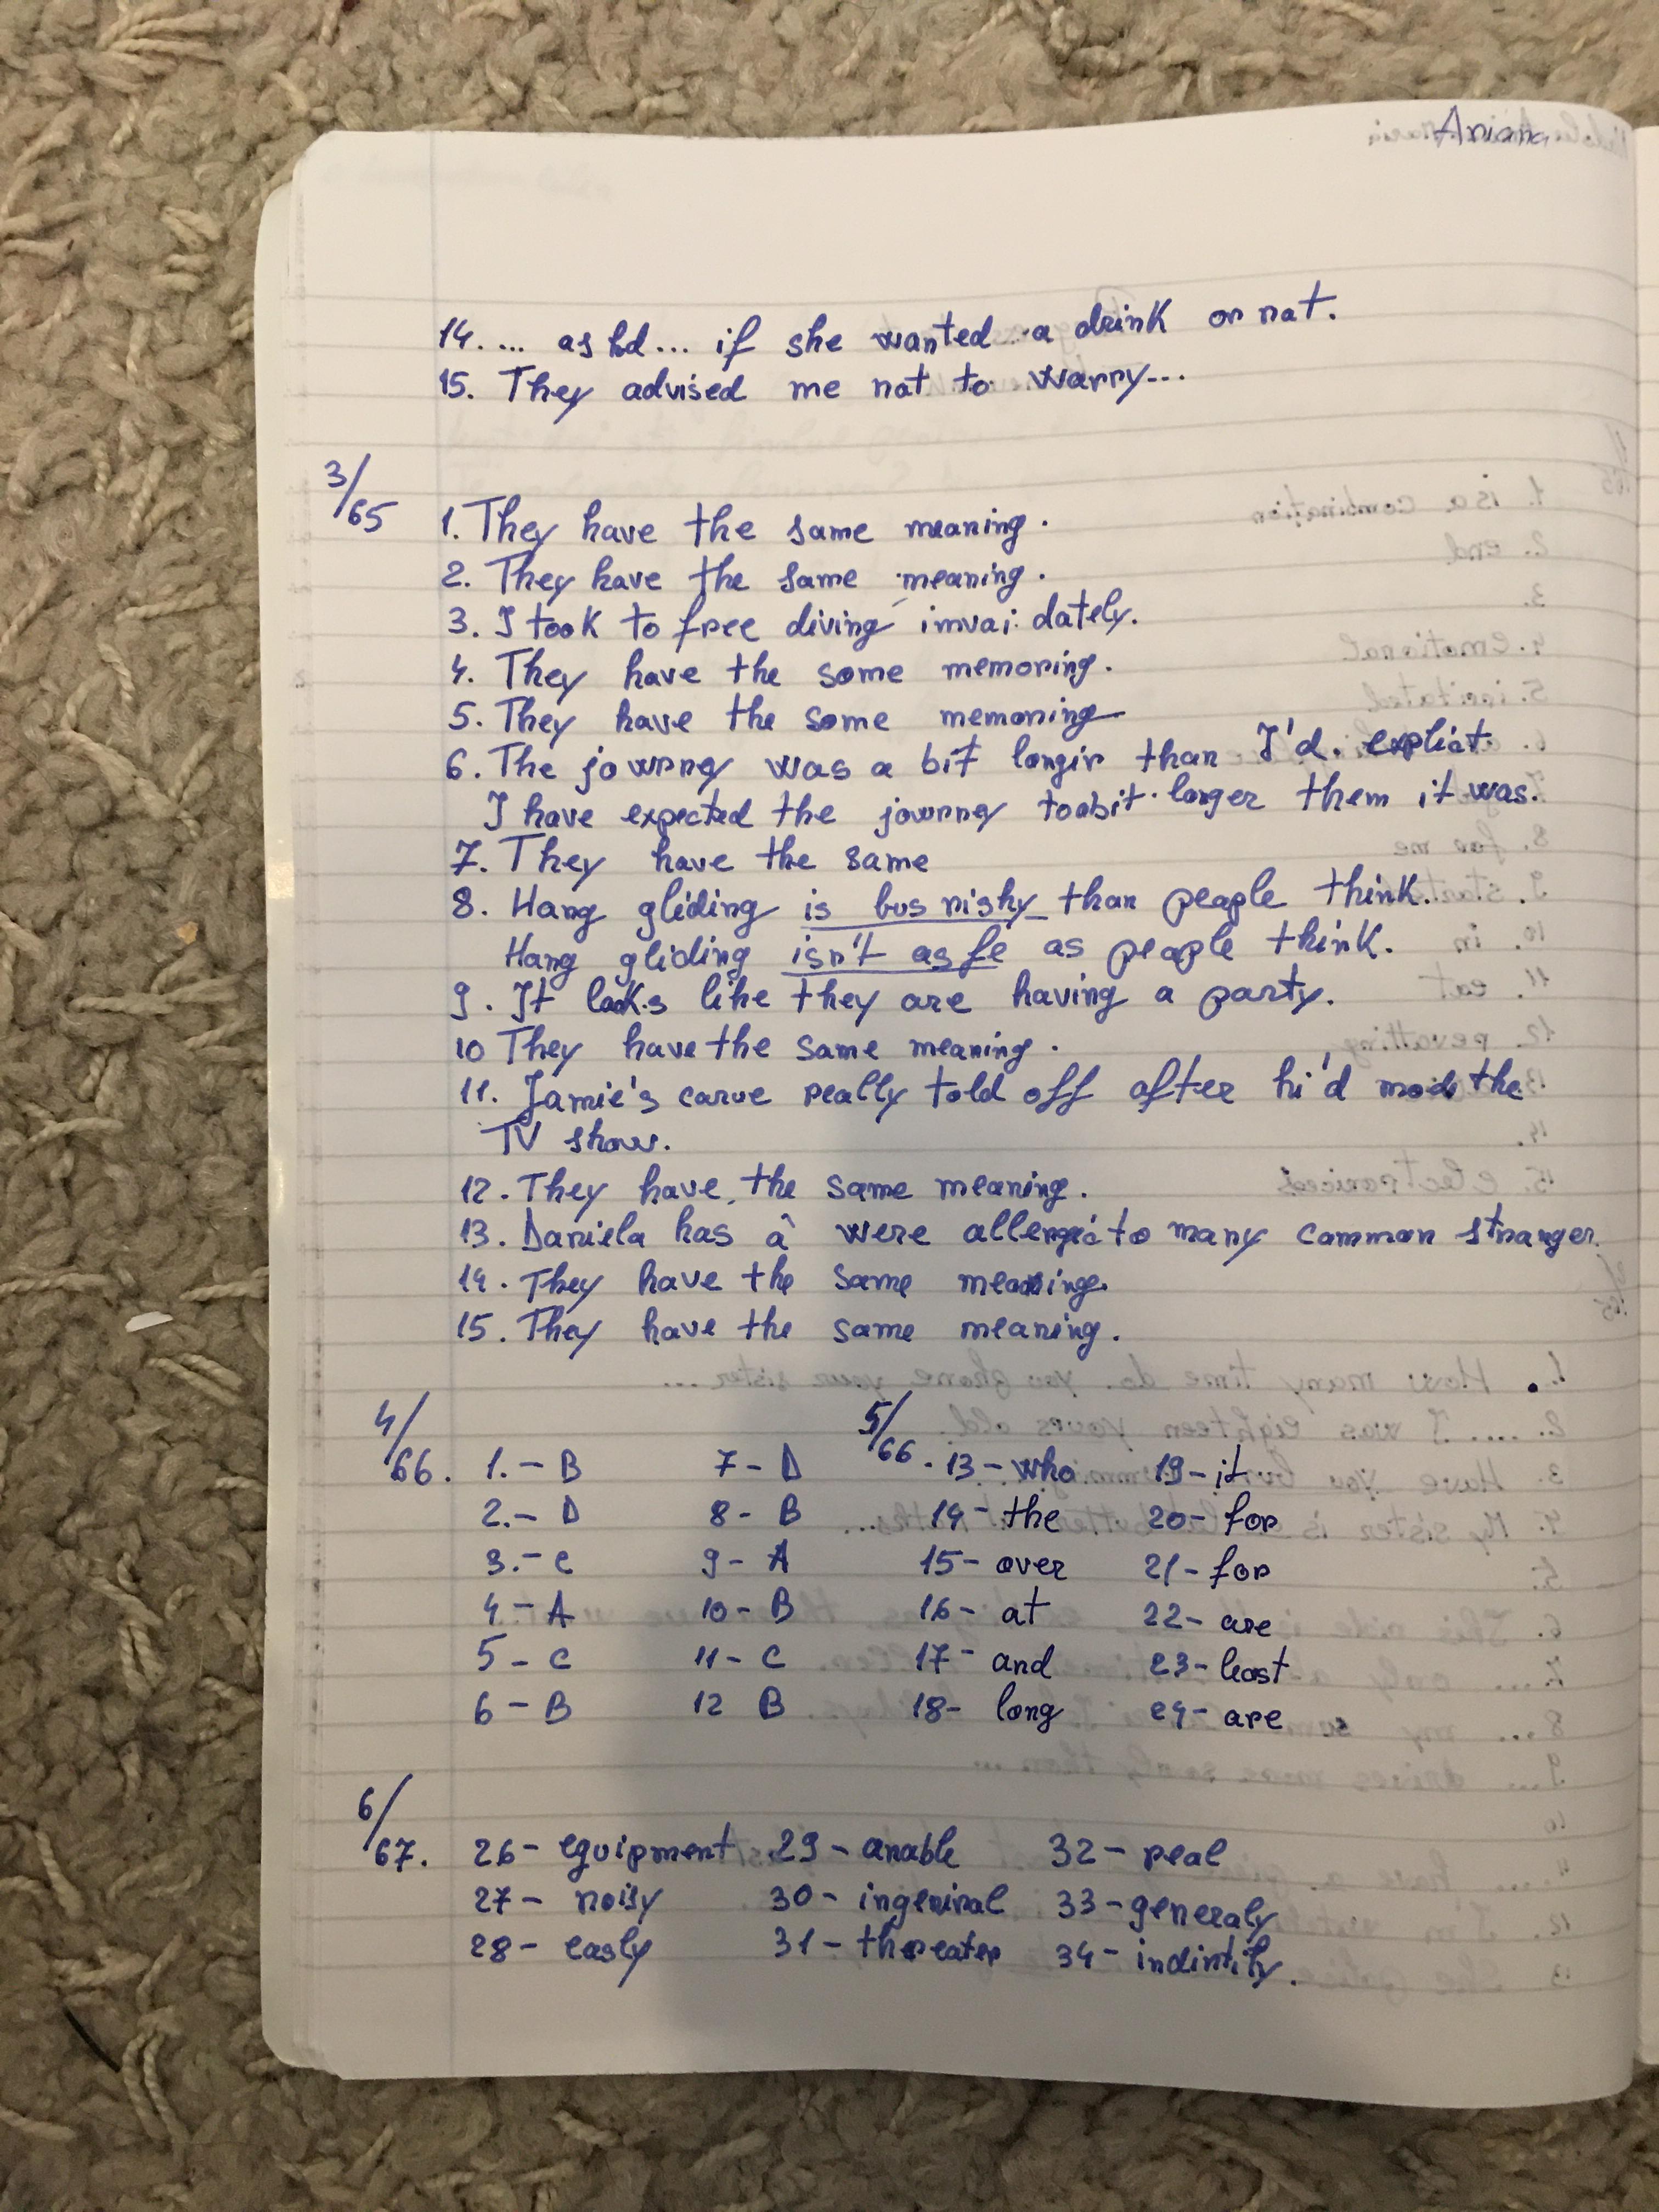 Ariana
14. ... ashd... if she wanted a drink or nat.
15. They advised me nat to warry...
3/65
1. They have the same meaning.
2. They have the same meaning.
3. I took to free diving imvai dately.
4. They have the some memoring.
5. They have the some memoring
6. The jowrney was a bit longir than I'd. explict.
I have expected the jowrney toabit larger them it was.
7. They have the same
8. Hang gliding is bus risky than peaple think.
Hang gliding isn't as fe as peaple think.
9. It looks like they are having a party.
10 They have the same meaning.
11. Jamie's carve really told off after hi'd mode the
TV show.
12. They have the same meaning.
13. Daniela has a were allergic to many camman stranger.
14. They have the same meaning.
15. They have the same meaning.
4/66. 1. - B 7 - D
2. - D 8 - B
3. - C 9 - A
4 - A 10 - B
5 - C 11 - C
6 - B 12 B
5/66. 13 - who 19 - it
14 - the 20 - for
15 - over 21 - for
16 - at 22 - are
17 - and 23 - least
18 - long 24 - are
6/67. 26 - equipment 29 - anable 32 - real
27 - noisy 30 - ingeniral 33 - generaly
28 - easly 31 - thereater 34 - indintify.